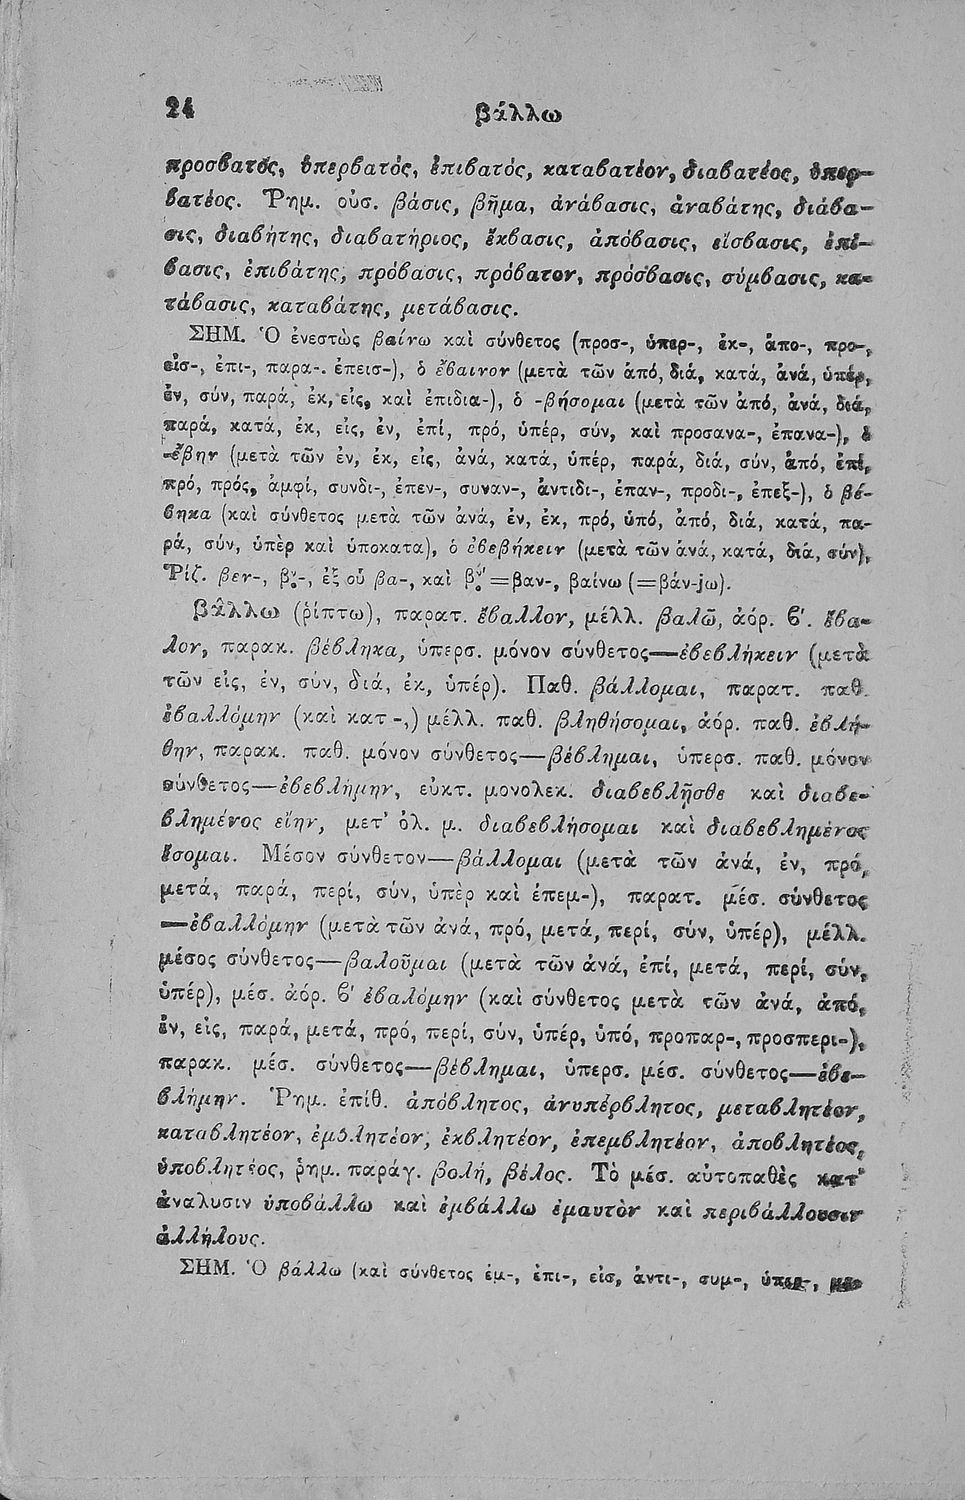 24
βάλλω
προσβατός, ὑπερβατός, ἐπιβατός, καταβατέον, διαβατέος, ὑπερ-
βατέος. Ῥημ. οὐσ. βάσις, βῆμα, ἀνάβασις, ἀναβάτης, διάβα-
σις, διαβήτης, διαβατήριος, ἔκβασις, ἀπόβασις, εἴσβασις, ἐπί-
βασις, ἐπιβάτης, πρόβασις, πρόβατον, πρόσβασις, σύμβασις, κα-
τάβασις, καταβάτης, μετάβασις.
ΣΗΜ. Ὁ ἐνεστὼς βαίνω καὶ σύνθετος (προσ-, ὑπερ-, ἐκ-, ἀπο-, προ-,
εἰσ-, ἐπι-, παρα-. ἐπεισ-), ὁ ἔβαινον (μετὰ τῶν ἀπό, διά, κατά, ἀνά, ὑπέρ,
ἐν, σύν, παρά, ἐκ, εἰς, καὶ ἐπιδια-), ὁ -βήσομαι (μετὰ τῶν ἀπό, ἀνά, διά,
παρά, κατά, ἐκ, εἰς, ἐν, ἐπί, πρό, ὑπέρ, σύν, καὶ προσανα-, ἐπανα-), ὁ
-ἔβην (μετὰ τῶν ἐν, ἐκ, εἰς, ἀνά, κατά, ὑπέρ, παρά, διά, σύν, ἀπό, ἐπί,
πρό, πρός, ἀμφί, συνδι-, ἐπεν-, συναν-, ἀντιδι-, ἐπαν-, προδι-, ἐπεξ-), ὁ βέ-
βηκα (καὶ σύνθετος μετὰ τῶν ἀνά, ἐν, ἐκ, πρό, ὑπό, ἀπό, διά, κατά, πα-
ρά, σύν, ὑπὲρ καὶ ὑποκατα), ὁ ἐβεβήκειν (μετὰ τῶν ἀνά, κατά, διά, σύν).
Ῥίζ. βεν-, ἐξ οὗ βα-, καὶ =βαν-, βαίνω (=βάν-jω).
βάλλω (ῥίπτω), παρατ. ἔβαλλον, μέλλ. βαλῶ, ἀόρ. β'. ἔβα-
λον, παρακ. βέβληκα, ὑπερσ. μόνον σύνθετος—ἐβεβλήκειν (μετὰ
τῶν εἰς, ἐν, σύν, διά, ἐκ, ὑπέρ). Παθ. βάλλομαι, παρατ. παθ.
ἐβαλλόμην (καὶ κατ-,) μέλλ. παθ. βληθήσομαι, ἀόρ. παθ. ἐβλή-
θην, παρακ. παθ. μόνον σύνθετος—βέβλημαι, ὑπερσ. παθ. μόνον
σύνθετος—ἐβεβλήμην, εὐκτ. μονολεκ. διαβεβλῇσθε καὶ διαβε-
βλημένος εἴην, μετ' ὁλ. μ. διαβεβλήσομαι καὶ διαβεβλημένος
ἔσομαι. Μέσον σύνθετον—βάλλομαι (μετὰ τῶν ἀνά, ἐν, πρό,
μετά, παρά, περί, σύν, ὑπὲρ καὶ ἐπεμ-), παρατ. μέσ. σύνθετος
—ἐβαλλόμην (μετὰ τῶν ἀνά, πρό, μετά, περί, σύν, ὑπέρ), μέλλ.
μέσος σύνθετος—βαλοῦμαι (μετὰ τῶν ἀνά, ἐπί, μετά, περί, σύν,
ὑπέρ), μέσ. ἀόρ. β' ἐβαλόμην (καὶ σύνθετος μετὰ τῶν ἀνά, ἀπό,
ἐν, εἰς, παρά, μετά, πρό, περί, σύν, ὑπέρ, ὑπό, προπαρ-, προσπερι-),
παρακ. μέσ. σύνθετος—βέβλημαι, ὑπερσ. μέσ. σύνθετος—ἐβε-
βλήμην. Ῥημ. ἐπίθ. ἀπόβλητος, ἀνυπέρβλητος, μεταβλητέον,
καταβλητέον, ἐμβλητέον, ἐκβλητέον, ἐπεμβλητέον, ἀποβλητέος,
ὑποβλητέος, ῥημ. παράγ. βολή, βέλος. Τὸ μέσ. αὐτοπαθὲς κατ'
ἀνάλυσιν ὑποβάλλω καὶ ἐμβάλλω ἐμαυτὸν καὶ περιβάλλουσιν
ἀλλήλους.
ΣΗΜ. Ὁ βάλλω (καὶ σύνθετος ἐμ-, ἐπι-, εἰσ, ἀντι-, συμ-, ὑπερ-,